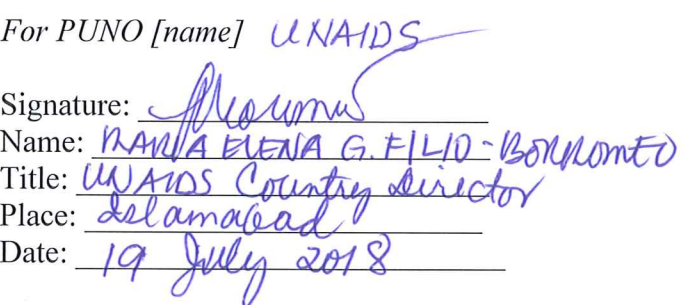 For PUNO [name] UNAIDS
Signature:
Name: MARIA ELENA G. FILIO-BORROMEO
Title: UNAIDS Country Director
Place: Islamabad
Date: 19 July 2018